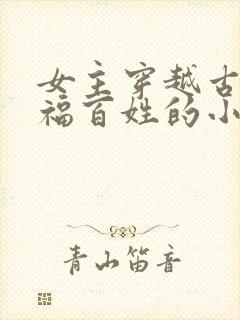 女主穿越古
福百姓的小
青山笛音